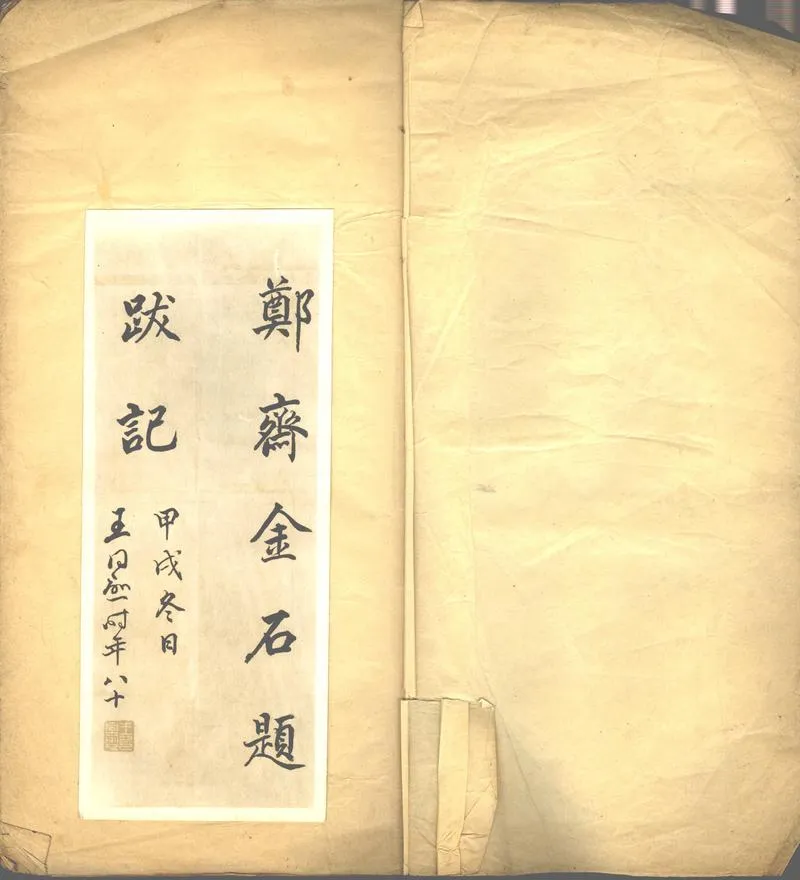 鄭齋金石題
跋記
甲戌冬日
王同愈時年八十